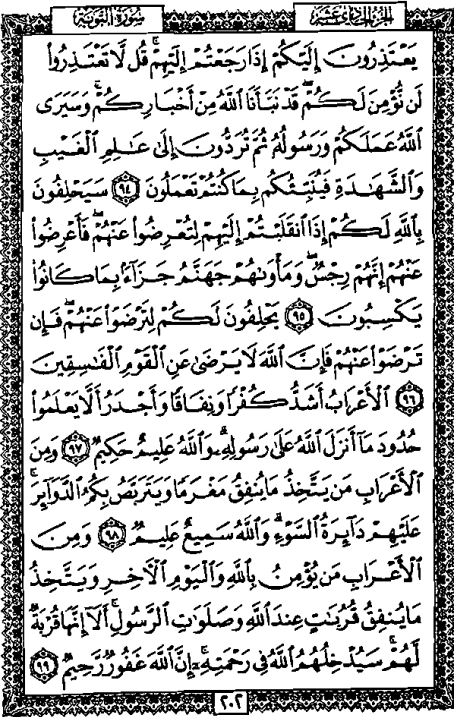 الجزء الحادي عشر سورة التوبة
يَعْتَذِرُونَ إِلَيْكُمْ إِذَا رَجَعْتُمْ إِلَيْهِمْ ۚ قُل لَّا تَعْتَذِرُوا۟
لَن نُّؤْمِنَ لَكُمْ قَدْ نَبَّأَنَا ٱللَّهُ مِنْ أَخْبَارِكُمْ ۚ وَسَيَرَى
ٱللَّهُ عَمَلَكُمْ وَرَسُولُهُۥ ثُمَّ تُرَدُّونَ إِلَىٰ عَٰلِمِ ٱلْغَيْبِ
وَٱلشَّهَٰدَةِ فَيُنَبِّئُكُم بِمَا كُنتُمْ تَعْمَلُونَ ٩٤ سَيَحْلِفُونَ
بِٱللَّهِ لَكُمْ إِذَا ٱنقَلَبْتُمْ إِلَيْهِمْ لِتُعْرِضُوا۟ عَنْهُمْ ۖ فَأَعْرِضُوا۟
عَنْهُمْ إِنَّهُمْ رِجْسٌ ۖ وَمَأْوَىٰهُمْ جَهَنَّمُ جَزَآءًۢ بِمَا كَانُوا۟
يَكْسِبُونَ ٩٥ يَحْلِفُونَ لَكُمْ لِتَرْضَوْا۟ عَنْهُمْ ۖ فَإِن
تَرْضَوْا۟ عَنْهُمْ فَإِنَّ ٱللَّهَ لَا يَرْضَىٰ عَنِ ٱلْقَوْمِ ٱلْفَٰسِقِينَ
٩٦ ٱلْأَعْرَابُ أَشَدُّ كُفْرًا وَنِفَاقًا وَأَجْدَرُ أَلَّا يَعْلَمُوا۟
حُدُودَ مَآ أَنزَلَ ٱللَّهُ عَلَىٰ رَسُولِهِۦ ۗ وَٱللَّهُ عَلِيمٌ حَكِيمٌ ٩٧ وَمِنَ
ٱلْأَعْرَابِ مَن يَتَّخِذُ مَا يُنفِقُ مَغْرَمًا وَيَتَرَبَّصُ بِكُمُ ٱلدَّوَآئِرَ ۚ
عَلَيْهِمْ دَآئِرَةُ ٱلسَّوْءِ ۗ وَٱللَّهُ سَمِيعٌ عَلِيمٌ ٩٨ وَمِنَ
ٱلْأَعْرَابِ مَن يُؤْمِنُ بِٱللَّهِ وَٱلْيَوْمِ ٱلْءَاخِرِ وَيَتَّخِذُ
مَا يُنفِقُ قُرُبَٰتٍ عِندَ ٱللَّهِ وَصَلَوَٰتِ ٱلرَّسُولِ ۚ أَلَآ إِنَّهَا قُرْبَةٌ
لَّهُمْ ۚ سَيُدْخِلُهُمُ ٱللَّهُ فِى رَحْمَتِهِۦٓ ۗ إِنَّ ٱللَّهَ غَفُورٌ رَّحِيمٌ ٩٩
٢٠٢